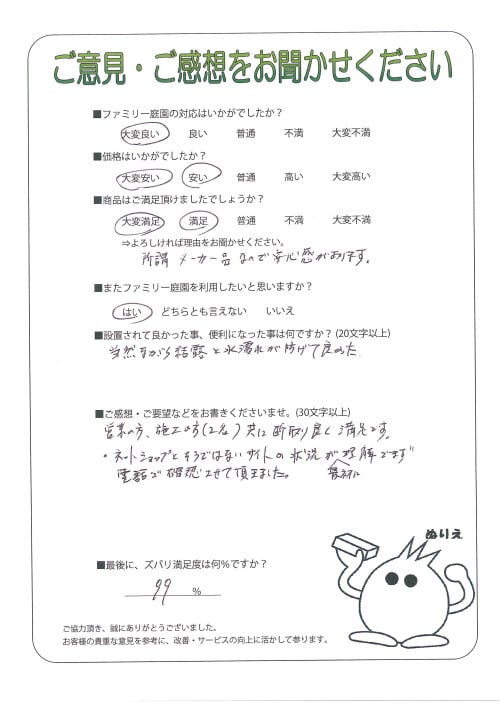 ご意見・ご感想をお聞かせください
■ファミリー庭園の対応はいかがでしたか?
大変良い 良い 普通 不満 大変不満
■価格はいかがでしたか?
大変安い 安い 普通 高い 大変高い
■商品はご満足頂けましたでしょうか?
大変満足 満足 普通 不満 大変不満
⇒よろしければ理由をお聞かせください。
所謂メーカー品なので安心感があります。
■またファミリー庭園を利用したいと思いますか?
はい どちらとも言えない いいえ
■設置されて良かった事、便利になった事は何ですか? (20文字以上)
当然ながら結露と水濡れが防げて良かった
■ご感想・ご要望などをお書きくださいませ。(30文字以上)
営業の方、施工の方(2名)共に段取り良く満足です。
・ネットショップとそうではないサイトの状況が理解できず
電話で確認させて頂きました。
ぬりえ
■最後に、ズバリ満足度は何%ですか?
99 %
ご協力頂き、誠にありがとうございました。
お客様の貴重な意見を参考に、改善・サービスの向上に活かして参ります。